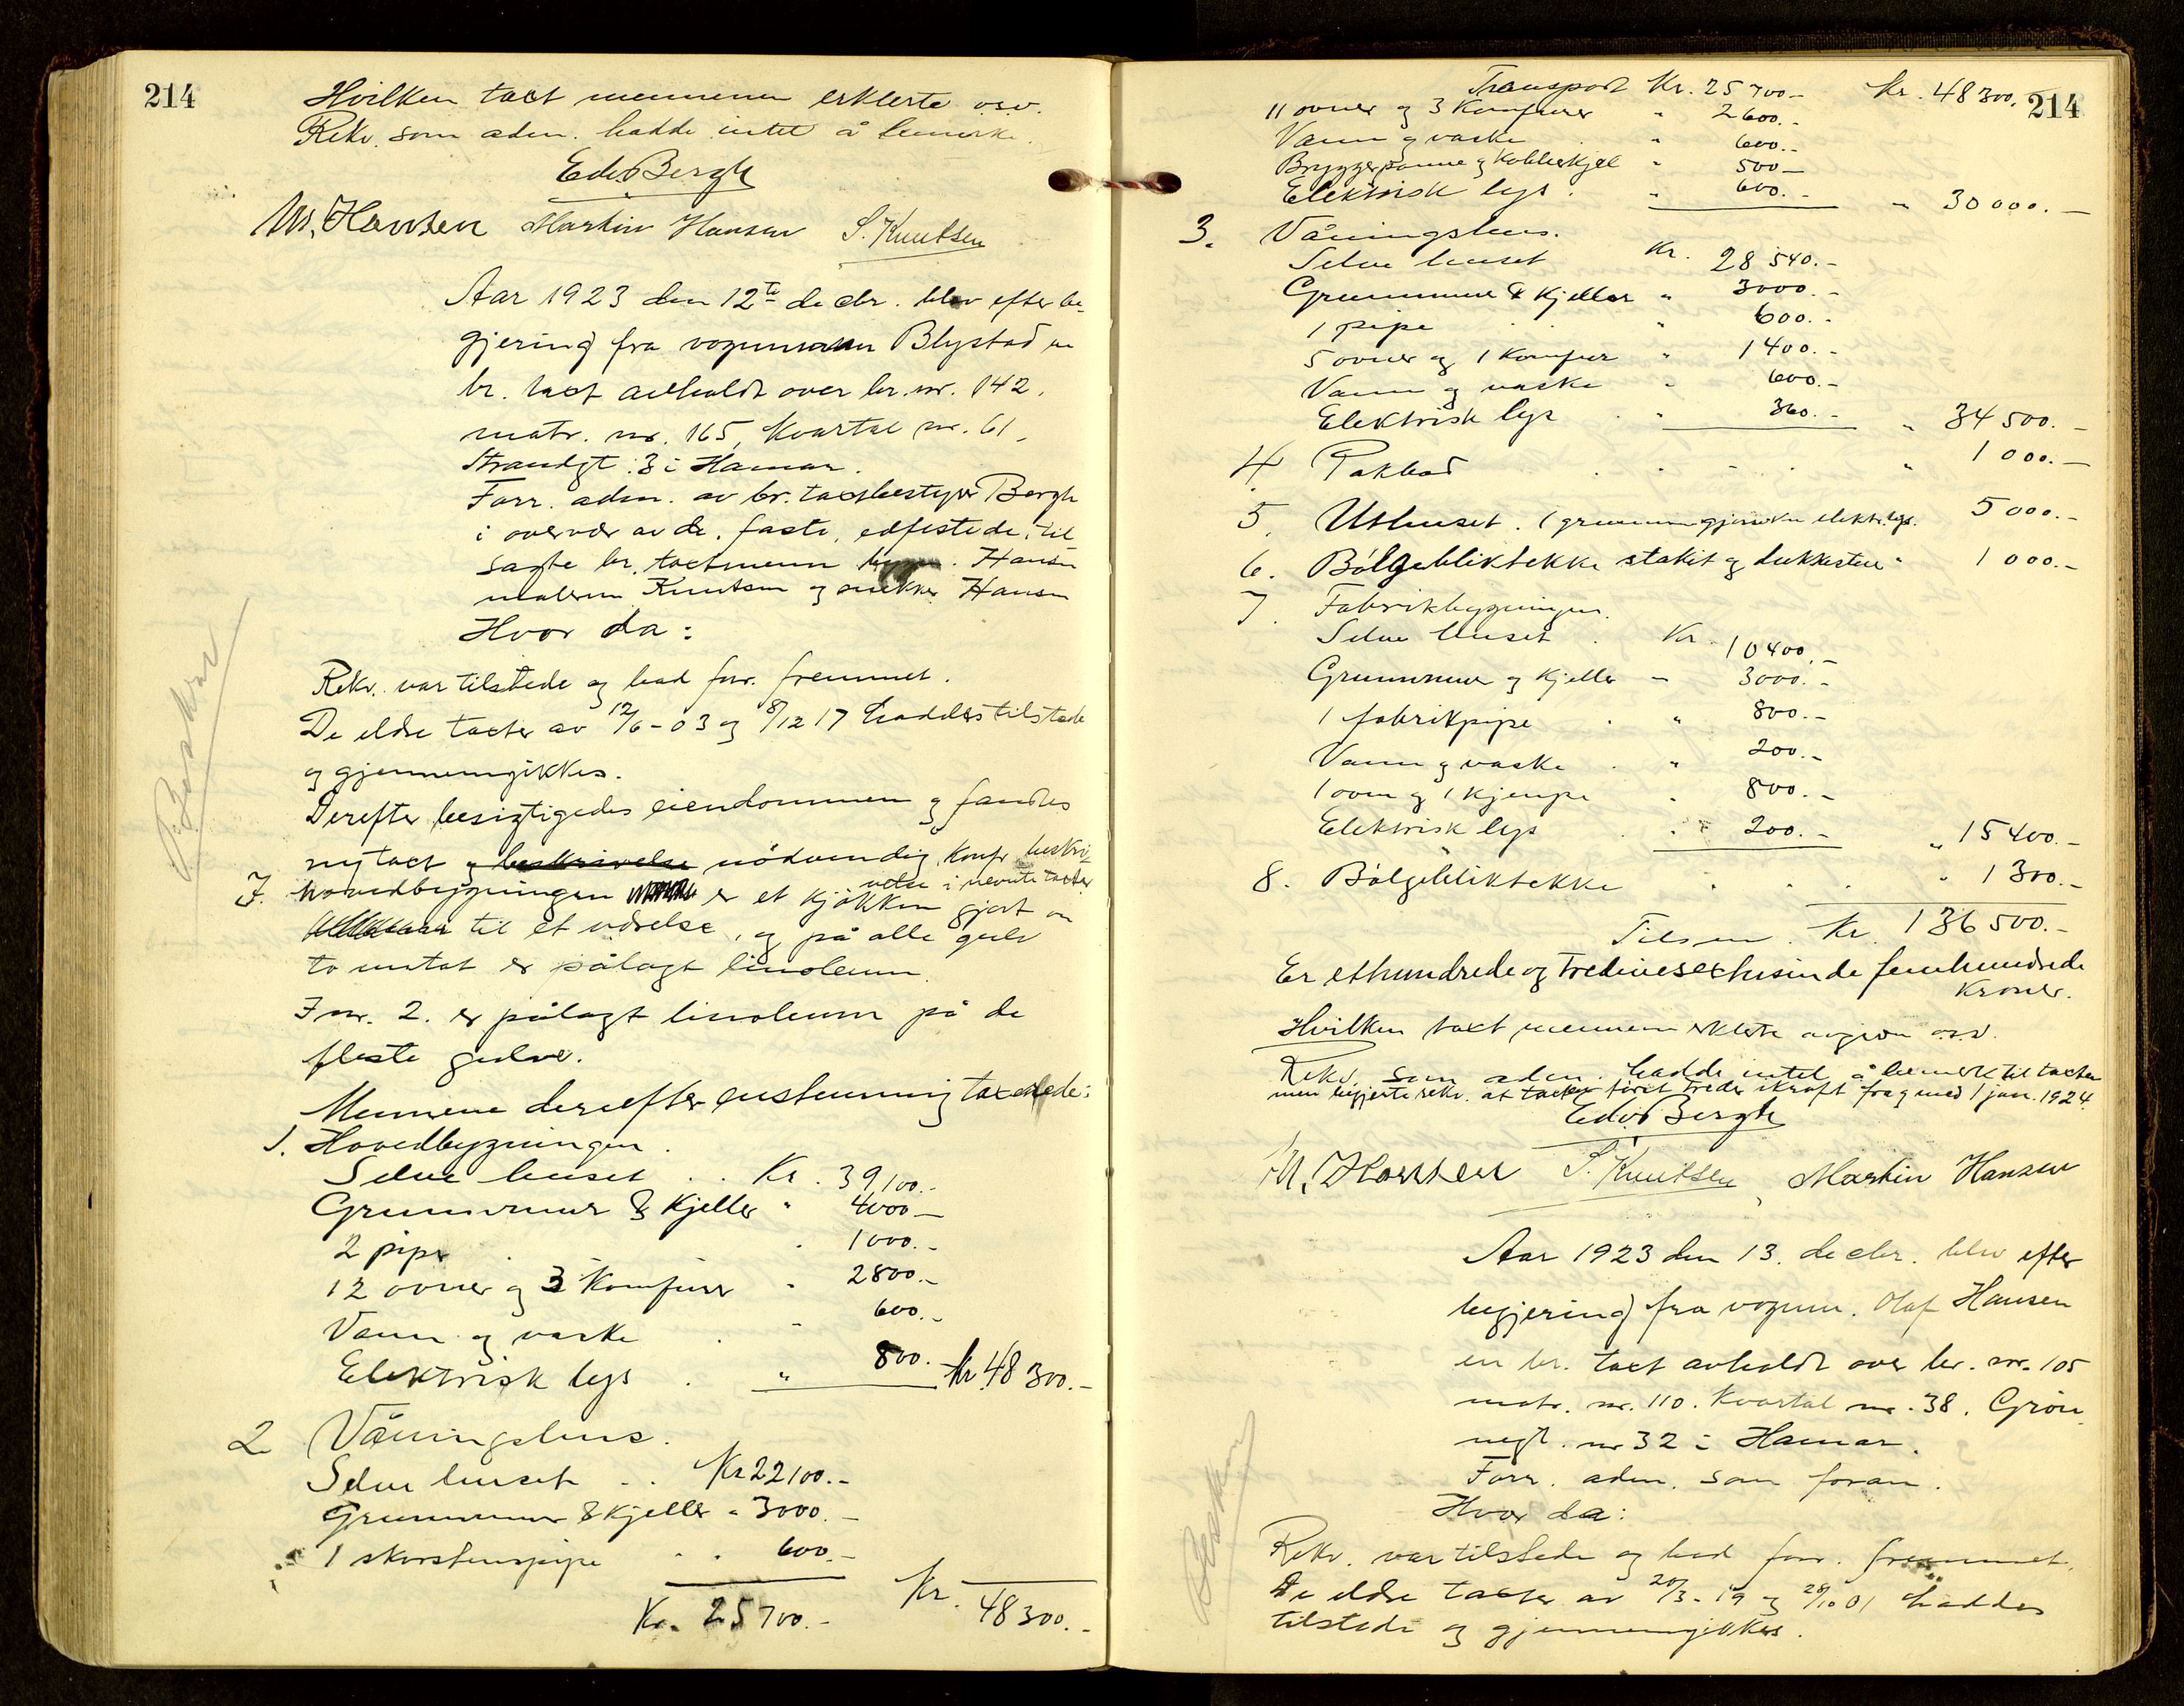 214
Hvilken taxt mennene erklerte osv.
Rekv. som adm. hadde intet å bemerke.
Edv Bergh
M. Hansen Martin Hansen S. Knutsen
Aar 1923 den 12te decbr. blev efter be-
gjering fra vognmann Blystad en
br. taxt avholdt over br. nr. 142,
matr. nr. 165, Kvartal nr. 61,
Strandgt. 3 i Hamar.
Forr. adm. av br. taxtbestyrer Bergh
i overvær av de faste, edfestede, til
sagte br. taxtmenn Hansen
maleren Knutsen og snekker Hansen
Hvor da:
Rekv. var tilstede og bad forr. fremmet.
De eldre taxter av 12/6-03 og 8/12 17 haddes tilstede
og gjennemgikkes.
Derefter besigtigedes eiendommen og fandtes
ny taxt og beskrivelse nödvendig, konfr. beskri-
velse i nevnte taxter
I. hovedbygningen er et kjökken gjort om
til et værelse, og på alle gulv
to nntat er pålagt linoleum.
I nr. 2. er pålagt linoleum på de
fleste gulve.
Mennene derefter enstemmig taxerede:
1. Hovedbygningen.
Selve huset . . Kr. 39100.-
Grunnmur & Kjeller " 4000.-
2 piper . " 1000.-
12 ovner og 3 Komfurer " 2800.-
Vann og vaske . " 600.-
Elektrisk lys . " 800. - Kr 48 300.-
2 Våningshus.
Selve huset . . Kr 22100.-
Grunnmur & Kjeller " 3000.-
1 skorstenspipe . . 600.-
Kr. 25 700.- Kr. 48 300.-
Beskrev
214
Transport Kr. 25 700.- Kr. 48 300.
11 ovner og 3 Komfurer " 2600.-
Vann og vaske " 600.-
Bryggepanne og Kobberkjel " 500.-
Elektrisk lys . " 600.- " 30 000.-
3. Våningshus.
Selve huset Kr. 28 540.-
Grunnmur & Kjeller " 3000.-
1 pipe . . " 600.-
5 ovner og 1 Komfur " 1400.-
Vann og vaske " 600.-
Elektrisk lys . " 360.- " 34 500.-
4 Pakbod . . . . " 1 000.-
5. Uthuset. (grunnmur gjerde elektr. lys. 5 000.-
6. Bölgebliktekke stakit og dukkestue " 1 000.-
7. Fabrikbygningen.
Selve huset . Kr. 10 400.-
Grunnmur og Kjeller " 3000.-
1 fabrikpipe . " 800.-
Vann og vaske . " 200.-
1 ovn og 1 kjempe " 800.-
Elektrisk lys . " 200.- " 15 400.-
8. Bölgebliktekke . . . " 1 300.-
Tilsm. Kr. 136 500.-
Er ethundrede og tredivesextusinde femhundrede
Kroner.
Hvilken taxt mennene erklerte avgivn osv.
Rekv. som adm. hadde intet å bemerk til taxten
men begjerte rekv. at taxten först treder ikraft fra og med 1 jan. 1924.
Edv Bergh
M. Hansen S. Knutsen, Martin Hansen
Aar 1923 den 13. decbr. blev efter
begjering fra vognm. Olaf Hansen
en br. taxt avholdt over br. nr. 105
matr. nr. 110. Kvartal nr. 38. Grön-
negt. nr 32 i Hamar.
Forr. adm. som foran.
Hvor da:
Rekv. var tilstede og bad forr. fremmet.
De eldre taxter av 20/3-19 og 28/10 01 haddes
tilstede og gjennemgikkes.
Beskrev